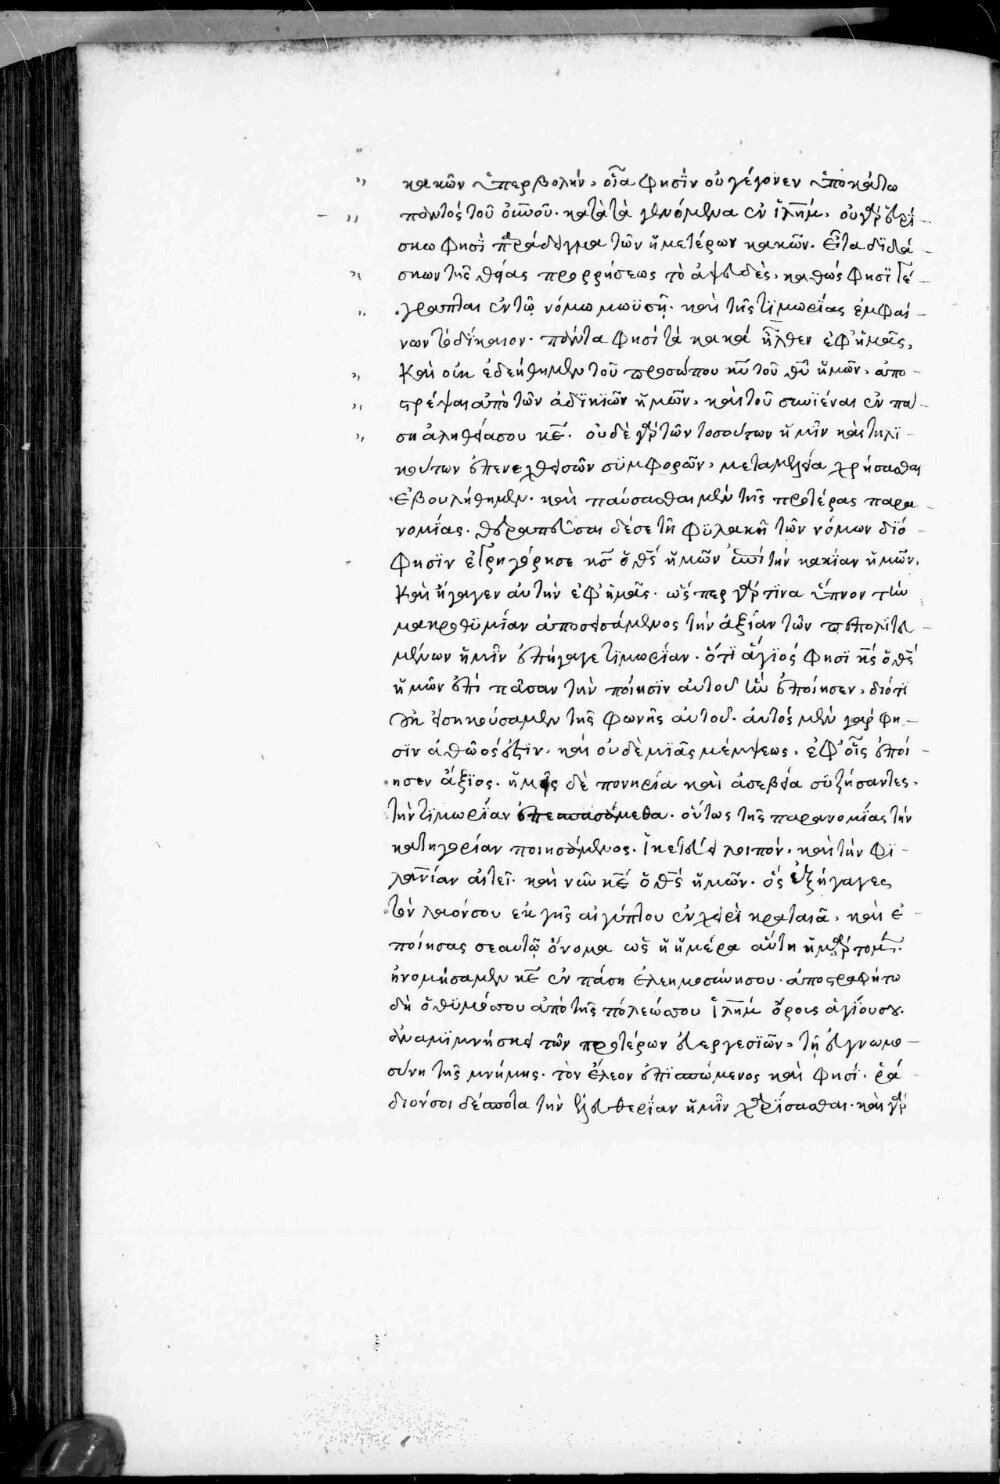 κακῶν ὑπερβολήν· οἷα φησὶν οὐ γέγονεν ὑποκάτω
παντὸς τοῦ οὐ̅νοῦ· κατὰ τὰ γενόμενα ἐν ἰλ̅ημ· οὐ γὰρ εὑρί-
σκω φησὶ παράδειγμα τῶν ἡμετέρων κακῶν. εἶτα διδά-
σκων τῆς θείας προρρήσεως τὸ ἀψευδὲς. καθὼς φησὶ γέ-
γραπται ἐν τῷ νόμω μωϋσῆ· καὶ τῆς τιμωρίας ἐμφαί-
νων τὸ δίκαιον· πάντα φησὶ τὰ κακὰ ἦλθεν ἐφ' ἡμᾶς,
καὶ οὐκ ἐδεήθημεν τοῦ προσώπου κ̅υ τοῦ θ̅υ ἡμῶν, ἀπο-
στρέψαι ἀπὸ τῶν ἀδικιῶν ἡμῶν· καὶ τοῦ συνϊέναι ἐν πά-
ση ἀληθεία σου κ̅ε. οὐδὲ γὰρ τῶν τοσούτων ἡμῖν καὶ τηλι-
κούτων ἐπενεχθεισῶν συμφορῶν, μεταμελεία χρήσασθαι
ἐβουλήθημεν· καὶ παύσασθαι μὲν τῆς προτέρας παρα-
νομίας· θεραπεῦσαι δέ σε τῆ φυλακῆ τῶν νόμων διό
φησιν ἐγρηγόρησε κ̅ς ὁ θ̅ς ἡμῶν ἐπὶ τὴν κακίαν ἡμῶν,
καὶ ἤγαγεν αὐτὴν ἐφ' ἡμᾶς· ὥσπερ γάρ τινα ὕπνον τὴν
μακροθυμίαν ἀποσεισάμενος τὴν ἀξίαν τῶν πεπολιτευ-
μένων ἡμῖν ἐπήγαγε τιμωρίαν. ὅτι ἅγιός φησι κ̅ς ὁ θ̅ς
ἡμῶν ἐπὶ πᾶσαν τὴν ποίησιν αὐτοῦ ἣν ἐποίησεν, διότι
οὐκ εἰσηκούσαμεν τῆς φωνῆς αὐτοῦ. αὐτὸς μὲν γάρ φη-
σιν ἀθῶός ἐστιν· καὶ οὐδὲ μιᾶς μέμψεως, ἐφ' οἷς ἐποί-
ησεν ἄξιος· ἡμεῖς δὲ πονηρία καὶ ἀσεβεία συζήσαντες.
τὴν τιμωρίαν ἐπεσπασάμεθα· οὕτως τῆς παρανομίας τὴν
κατηγορίαν ποιησάμενος. ἱκετεύει λοιπόν· καὶ τὴν φι-
λαν̅ίαν αἰτεῖ· καὶ νῦν κ̅ε ὁ θ̅ς ἡμῶν· ὃς ἐξήγαγες
τὸν λαόν σου ἐκ γῆς αἰγύπτου ἐν χειρὶ κραταιᾶ, καὶ ἐ-
ποίησας σεαυτῷ ὄνομα ὡς ἡ ἡμέρα αὕτη ἡμάρτομεν.
ἠνομήσαμεν κ̅ε ἐν πάση ἐλεημοσύνη σου· ἀποστραφήτω
δὴ ὁ θυμός σου ἀπὸ τῆς πόλεώς σου ἰλ̅ημ ὄρους ἁγίου σου.
ἀναμιμνήσκει τῶν προτέρων εὐεργεσιῶν, τῆ εὐγνωμο-
σύνη τῆς μνήμης· τὸν ἔλεον ἐπισπώμενος καὶ φησί· ῥά-
διόν σοι δέσποτα τὴν ἐλευθερίαν ἡμῖν χαρίσασθαι· καὶ γὰρ